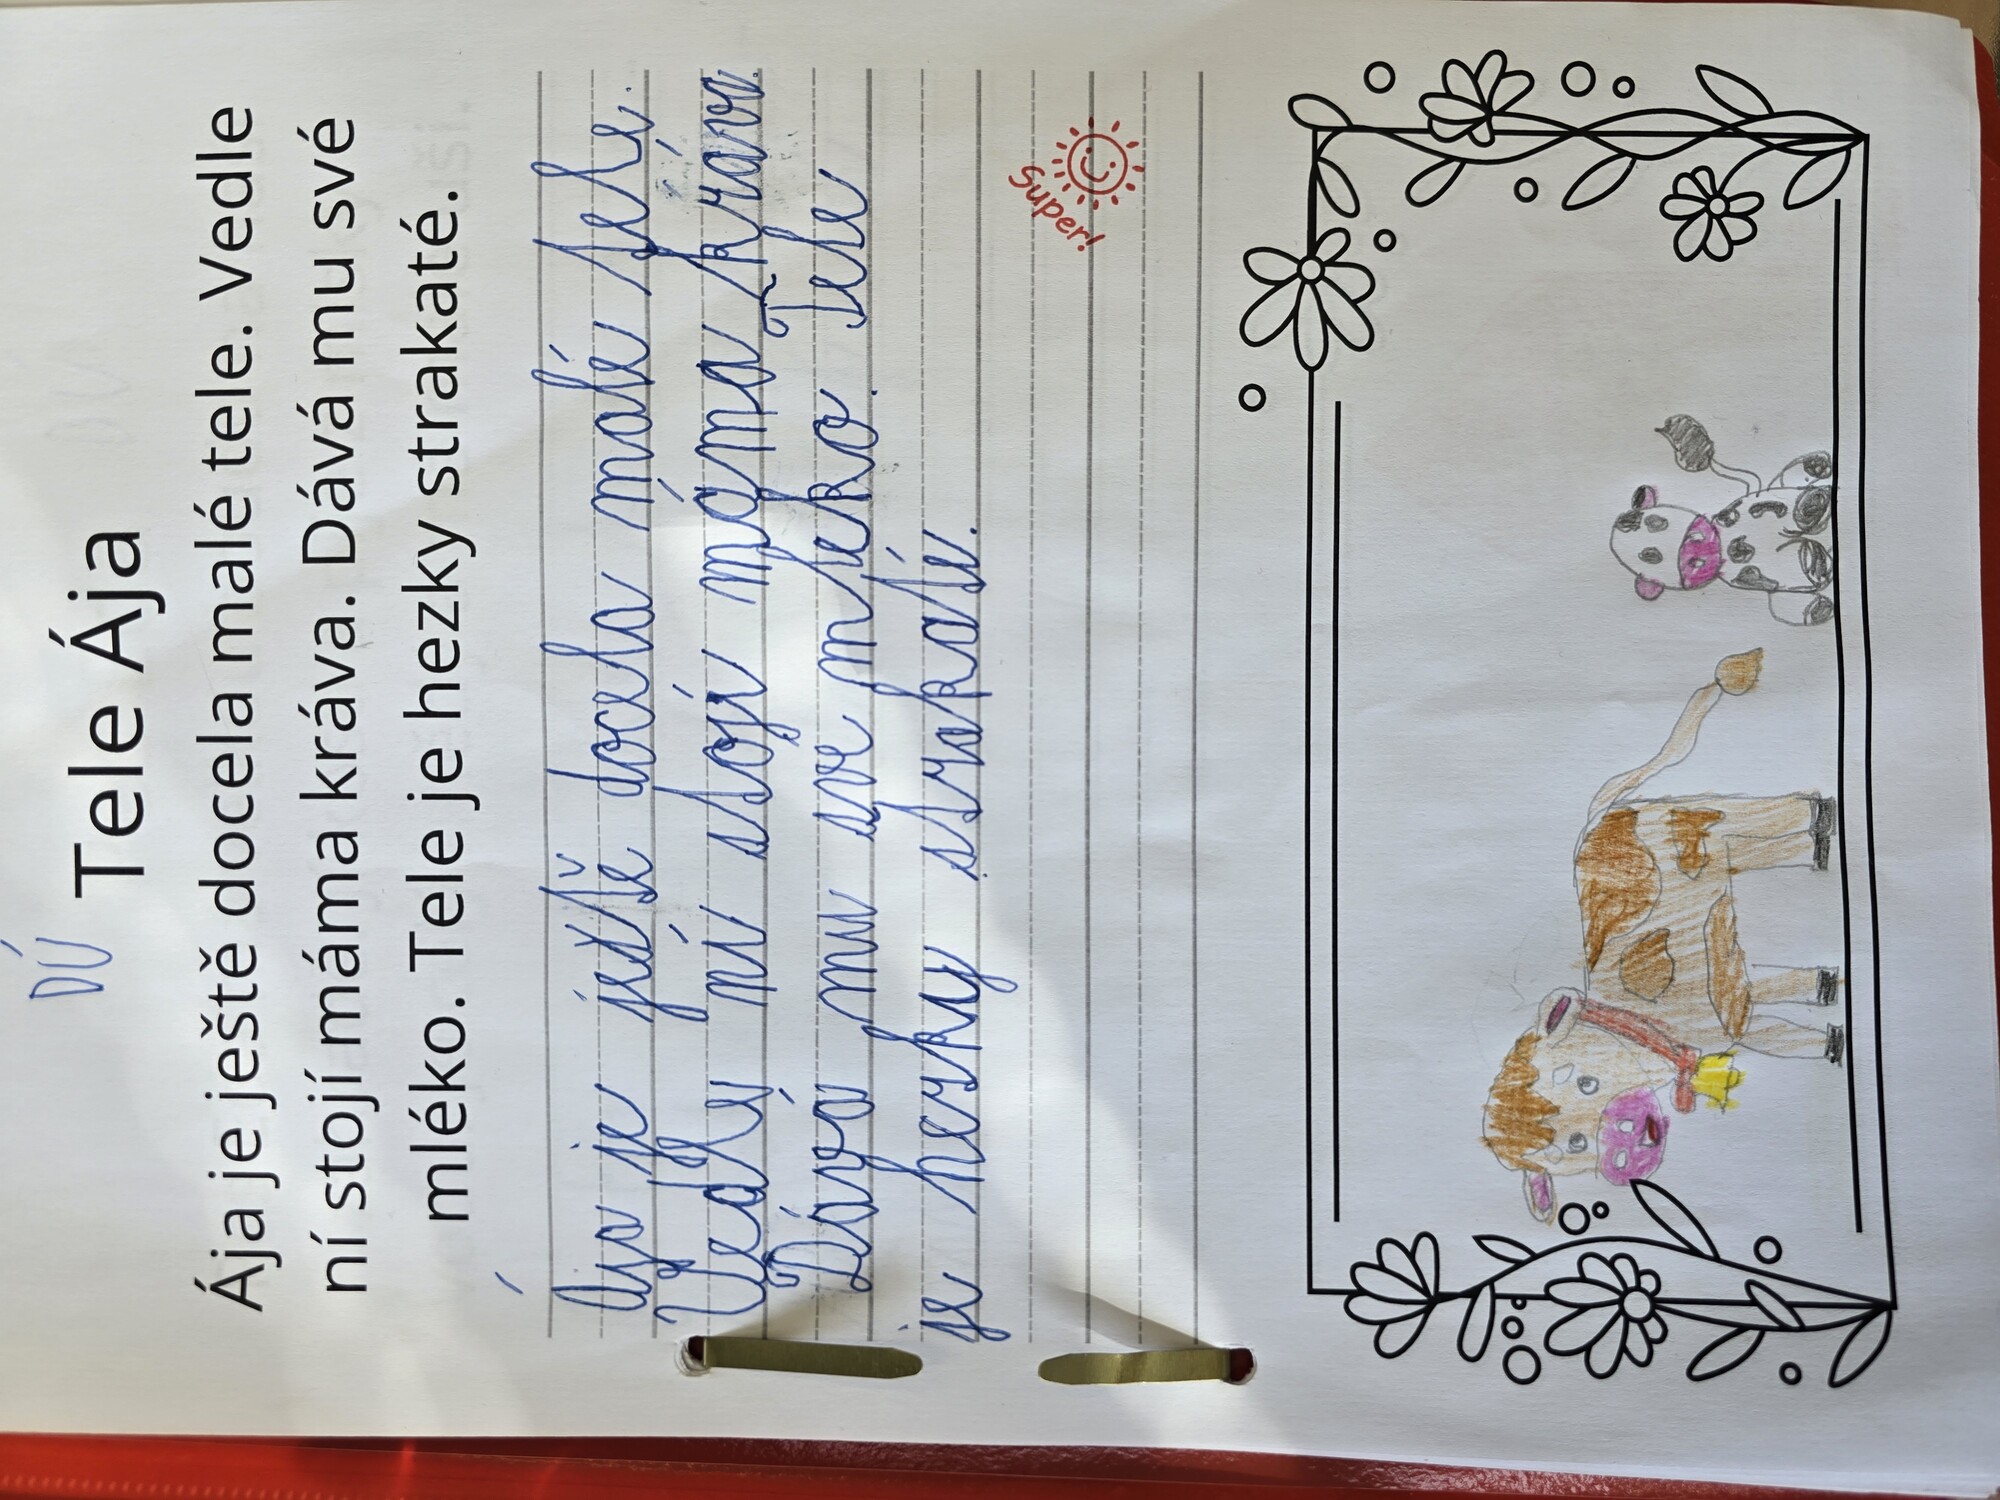 DÚ
Tele Ája
Ája je ještě docela malé tele. Vedle
ní stojí máma kráva. Dává mu své
mléko. Tele je hezky strakaté.
Ája je ještě docela malé tele.
Vedle ní stojí máma kráva.
Dává mu své mléko. Tele
je hezky strakaté.
Super!